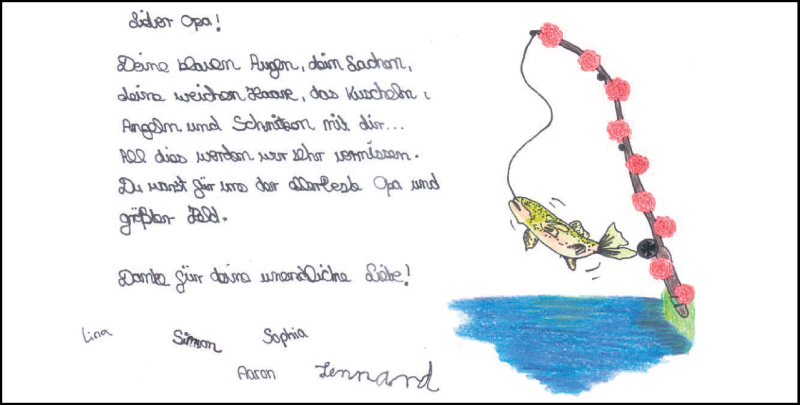 Lieber Opa!
Deine blauen Augen, dein Lachen,
deine weichen Haare, das Kuscheln,
Angeln und Schnitzen mit dir...
All dies werden wir sehr vermissen.
Du warst für uns der allerbeste Opa und
größter Held.
Danke für deine unendliche Liebe!
Lina Simon Sophia
Aaron Lennard